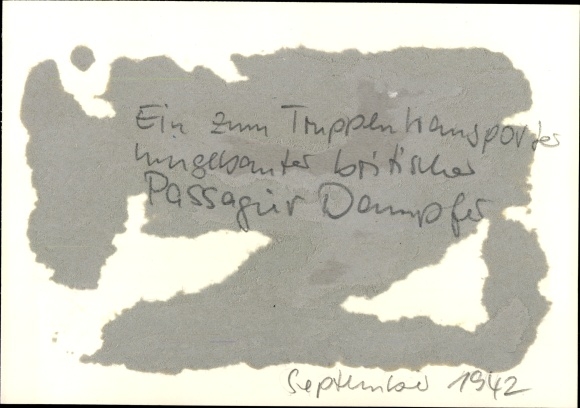 Ein zum Truppentransporter
umgebauter britischer
Passagier Dampfer
September 1942